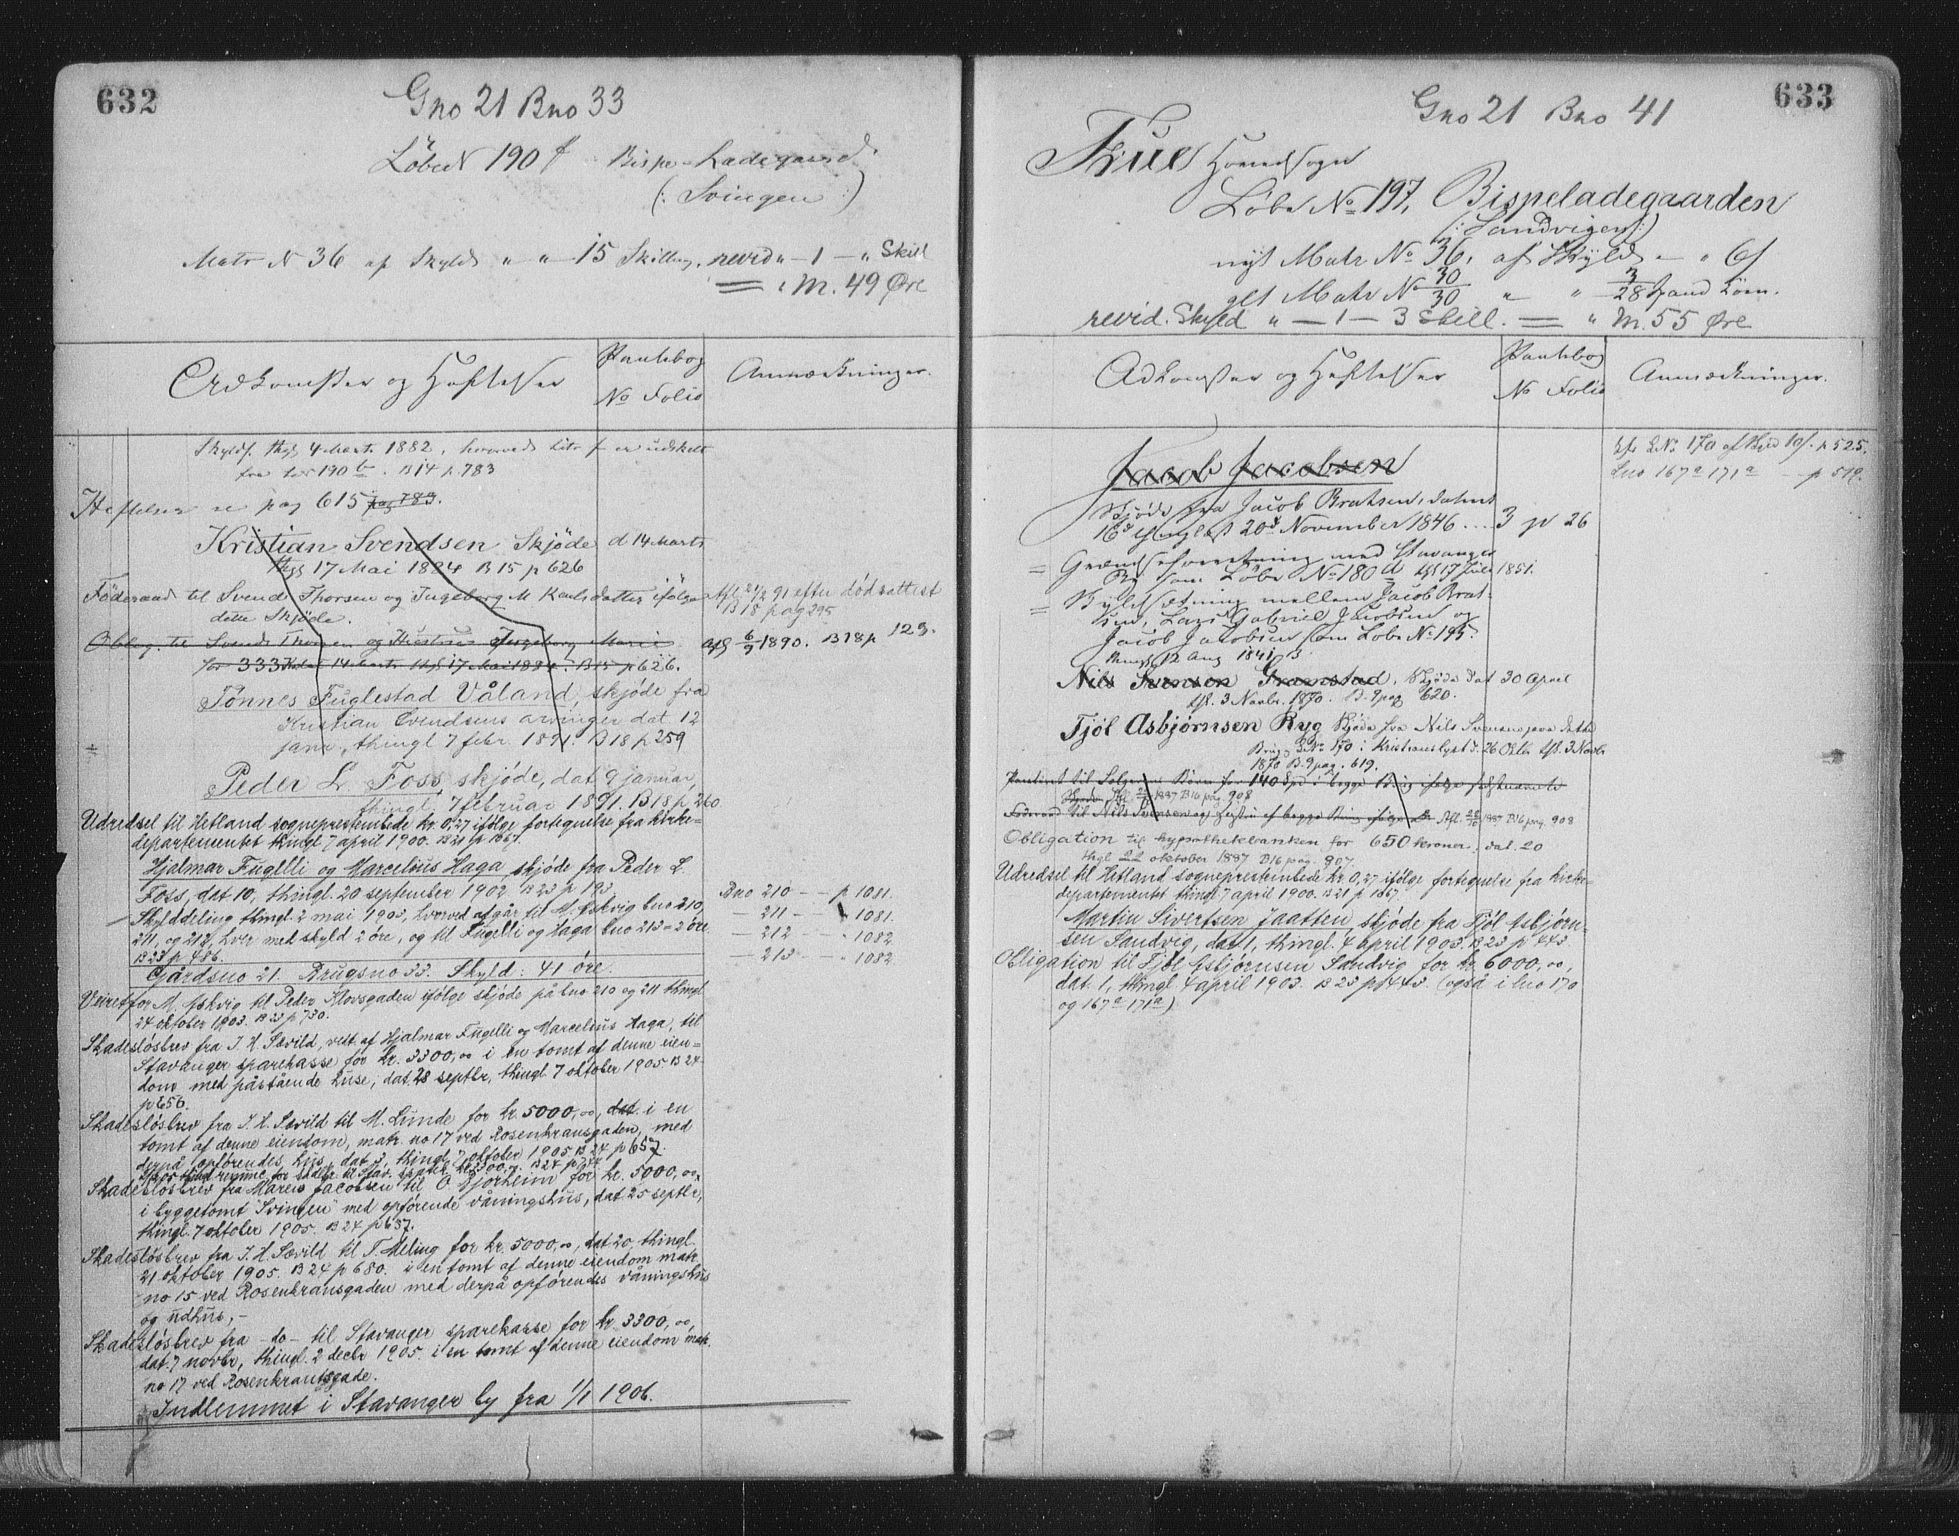 632
Gno 21 Bno 33
Løbe N 190 f Bispe-Ladegaard
(: Svingen :)
Matr N 36 af Skyld " " 15 Skilling. revid " - 1 - " Skill
= " M. 49 Øre
Adkomster og Heftelser
Pantebog
No Folio
Anmærkninger.
Skyldf. thgl 4 Marts 1882, hvorved Litr f er udskilt
fra Lno 190 b. B 14 p. 783
Heftelser se pag 615 pag 783.
Kristian Svendsen Skjöde d 14 Marts
thgl 17 Mai 1884 B 15 p 626
Föderaad til Svend Thorsen og Ingeborg M Karlsdatter ifölge
dette Skjöde.
Afl 21/2 91 efter dödsattest
B 18 pag 295
Oblig. til Svend Thorsen og Hustru Ingeborg Marie
for 333 Kr dat 14 Marts thgl 17 Mai 1884. B 15 p 626.
Afl 6/9 1890. B 18 p 123.
Tönnes Fuglestad Våland, skjöde fra
Kristian Svendsens arvinger dat. 12
janr, thingl 7 febr. 1891. B 18 p 259
Peder L. Foss, skjöde, dat 9 januar,
thingl 7 februar 1891. B 18 p 260
Udredsel til Hetland sogneprestembede kr. 0,27 ifölge fortegnelse fra kirke-
departementet thingl 7 april 1900. B 21 p 1867.
Hjalmar Fugelli og Marcelius Haga, skjöde fra Peder L.
Foss, dat 10, thingl. 20 september 1902 B 23 p 193.
Skylddeling thingl. 2 mai 1903, hvorved afgår til M. Askvig bno 210,
211, og 212, hver med skyld 2 öre, og til Fugelli og Haga bno 213 = 2 öre
B 23 p 486.
Bno 210 - - p 1081.
- 211 - - " 1081.
- 212 - - " 1082
- 213 - - " 1082
Gårdsno 21. Brugsno 33. Skyld: 41 öre.
Veiret for M. Askvig til Peder Klovsgaden ifölge skjöde på bno 210 og 211 thingl
24 oktober 1903. B 23 p 730.
Skadeslösbrev fra J. H. Sævild, vedt. af Hjalmar Fugelli og Marcelius Haga, til
Stavanger sparekasse for kr. 3300,00 i en tomt af denne eien-
dom med påstående huse, dat 28 septbr, thingl 7 oktober 1905. B 24
p 656.
Skadeslösbrev fra J. H. Sævild til M. Lunde for kr. 5000,00, dat. i en
tomt af denne eiendom, matr. no 17 ved Rosenkransgaden, med
derpå opförendes hus, dat 3, thingl. 7 oktober 1905 B 24 p 657.
Skadeslösbrev fra Maren Jacobsen til O Gjorheim for kr. 5000,00,
i byggetomt Svingen med opförende våningshus, dat 25 septbr,
thingl. 7 oktober 1905. B 24 p 657.
Skadeslösbrev fra J. H. Sævild til T. Meling for kr. 5000,00, dat 20, thingl.
21 oktober 1905. B 24 p 680. i en tomt af denne eiendom matr.
no 15 ved Rosenkransgaden med derpå opförendes våningshus
og udhus, -
Skadeslösbrev fra -do- til Stavanger sparekasse for kr. 3300,00,
dat. 7 novbr, thingl. 2 decbr 1905. i en tomt af denne eiendom matr.
no 17 ved Rosenkrantsgade.
Indlemmet i Stavanger by fra 1/1 1906.
633
Gno 21 Bno 41
Frue Hovedsogn
Løbe No 197, Bispeladegaarden
(: Sandvigen :)
nyt Matr No 36, af Skyld - " 6 f
glt Matr No 30/30 " " 3/28 Spand Korn.
revid. Skyld " - 1 - 3 Skill. = " M. 55 Øre
Adkomster og Heftelser
Pantebog
No Folio
Anmærkninger.
Jacob Jacobsen
Skjøde fra Jacob Bratsen, dateret
16d thinglæst 20d November 1846 ... 3 p 26
= Grændseforretning med Stavanger
By som Løbe No 180 d thgl 17 Juli 1851.
= Skyldsætning mellem Jacob Brat-
sen, Lars Gabriel Jacobsen og
Jacob Jacobsen som Løbe No 195.
thingl 12 Aug 1841
Nils Svensen Grønstad. Skjøde dat 30 April
thl. 3 Novbr. 1870. B. 9 pag 620.
Tjöl Asbjørnsen Ryg Skjøde fra Nils Svensen paa dette
Brug & No 170 i Kristianslyst d. 26 Oktb. thl. 3 Novbr
1870 B. 9 pag. 619.
Panteret til Sælgerens Börn for 140 Spd i begge Brug ifölge
Skjøde Afl 1887 B 16 pag 908
Föderaad til Nils Svensen og Hustru af begge Brug ifölge Afl. 1887 B 16 pag. 908
Obligation til hypothekbanken for 650 kroner, dat. 20
thgl 22 oktober 1887 B 16 pag. 907.
Udredsel til Hetland sogneprestembede kr 0,27 ifölge fortegnelse fra kirke-
departementet thingl 7 april 1900. B 21 p 1867.
Martin Sivertsen Jaatten, skjöde fra Tjöl Asbjørn-
sen Sandvig, dat 1, thingl. 4 april 1903. B 23 p 443.
Obligation til Tjöl Asbjörnsen Sandvig for kr. 6000,00,
dat. 1, thingl. 4 april 1903. B 23 p 443. (også i lno 170
og 167 a 171 a)
Efr L No 170 af Skyld p 525.
Lno 167 a 171 a - p 519.